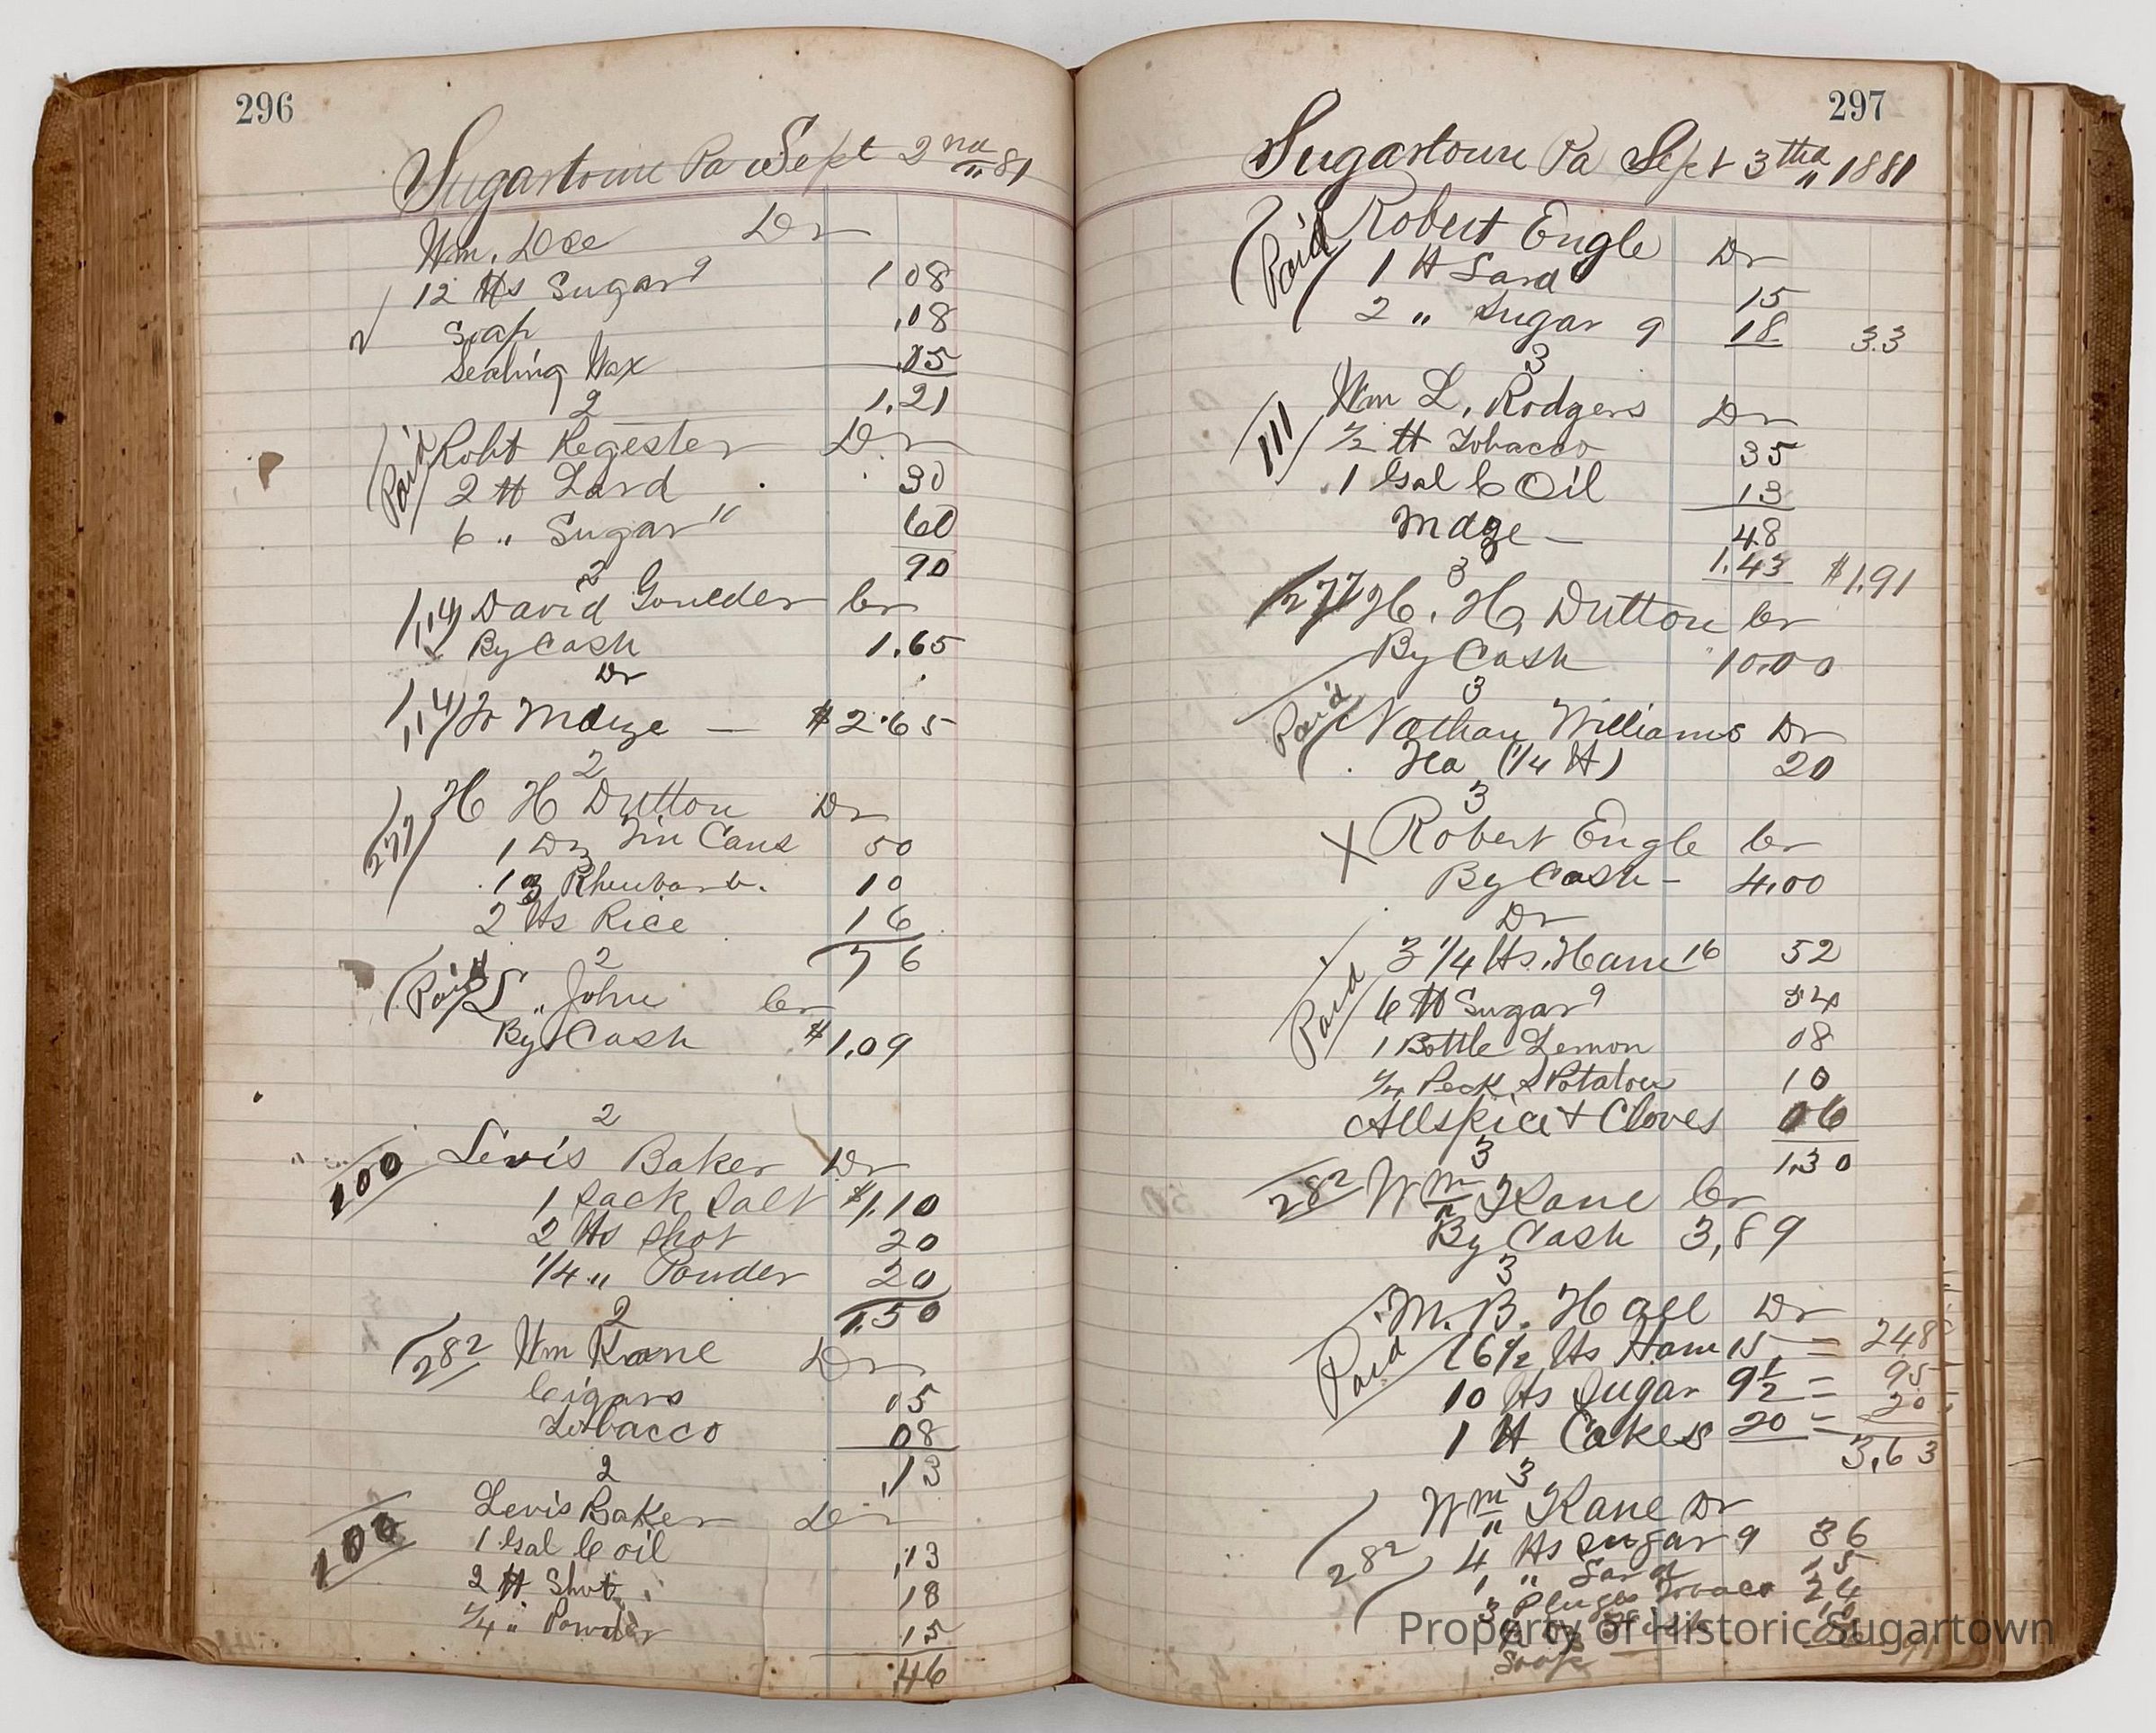 296
Sugartown Pa Sept 2nd " 81
Wm. Doe Dr
12 lbs Sugar 9 1 08
Soap .08
Sealing Wax .05
1.21
2
Paid Robt Regester Dr
2 lb Lard 30
6 " Sugar " 60
90
2
114 David Goulder Cr
By Cash 1.65
Dr
114 To Mdze — $2.65
2
277 H H Dutton Dr
1 Dz Tin Cans 50
1 ℥ Rheubarb. 10
2 lbs Rice 16
76
2
Paid S " John Cr
By Cash $1.09
2
100 Levis Baker Dr
1 Sack Salt $1.10
2 lbs Shot 20
1/4 " Powder 20
1.50
2
282 Wm Kane Dr
Cigars 05
Tobacco 08
.13
2
100 Levis Baker Dr
1 Gal C oil .13
2 lb Shot 18
1/4 " Powder 15
.46
297
Sugartown Pa Sept 3 " 1881
Paid Robert Engle Dr
1 lb Lard 15
2 " Sugar 9 18 33
3
111 Wm L. Rodgers Dr
1/2 lb Tobacco 35
1 Gal C Oil 13
Mdze — 48
3 1.43 $1.91
277 H. H. Dutton Cr
By Cash 10.00
3
Paid Nathan Williams Dr
Tea (1/4 lb) 20
3
X Robert Engle Cr
By Cash - 4.00
Dr
Paid 3 1/4 lbs. Ham 16 52
6 lb Sugar 9 54
1 Bottle Lemon 08
1/4 Peck S Potatoes 10
Allspice + Cloves 06
3 1.30
282 Wm " Kane Cr
By Cash 3,89
3
M. B. Hall Dr
Paid 16 1/2 lbs Ham 15 = 248
10 lbs Sugar 9 1/2 = 95
1 lb Cakes 20 = 20
3,63
3
Wm " Kane Dr
282 4 lbs Sugar 9 36
1 " Lard 15
3 Pluges Tobaco 24
Soap
Property of Historic Sugartown